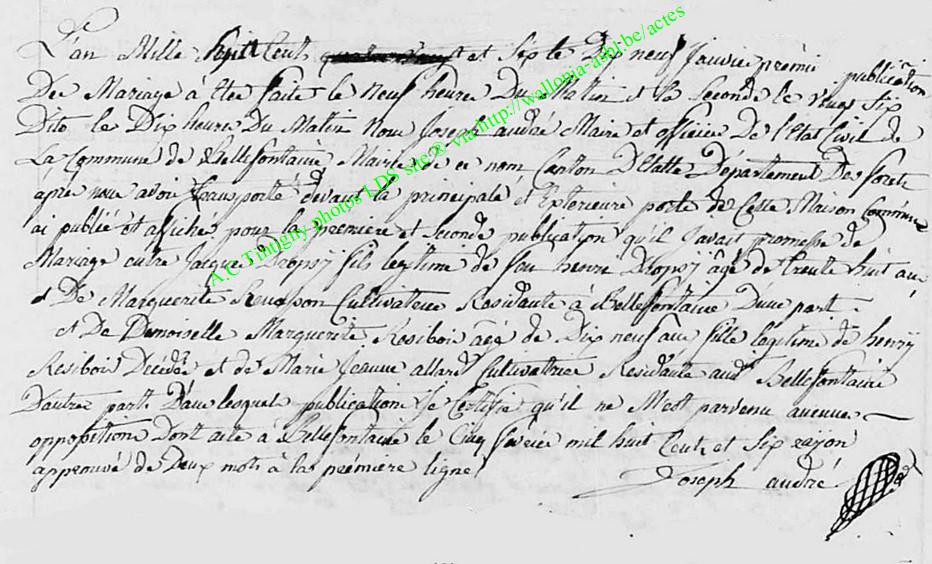 L'an Mille huit Cent et Six le Dix neuf Janvier premie publication
De Mariage à êtee faite le Neuf heure Du Matin & la Seconde le vingt Six
Dito le Dix heure Du Matin Nous Joseph andré Maire et officier De l'Etat Civil de
La Commune de Bellefontaine Mairie de ce nom Canton D'Etalle Département Des forets
après nou avoir transporté devant la principale et Exterieure porte de Cette Maison Commune
ai publié et affiché pour la premiere et Seconde publication qu'il Javait promesse de
Mariage entre Jacque fils legitime de feu henri âgé de trente huit an
& De Marguerite Cultivateur Residante à Bellefontaine D'une part
et De Demoiselle Marguerite Rosiboir agé de Dix neuf ans fille légitime de henry
Resiboir Décédée et de Marie Jeanne allard Cultivatrice Residante audt Bellefontaine
D'autre part. D'ans lesquel publication Je Certifie qu'il ne M'est parvenu aucune
oppofition Dont acte à Bellefontaine le Cinq fevrier mil huit Cent et Six rayon
approuvé de Deux mots à la premiere ligne
Joseph andré
A.C Tintigny photos LDS site® via http://wallonia-asbl.be/actes